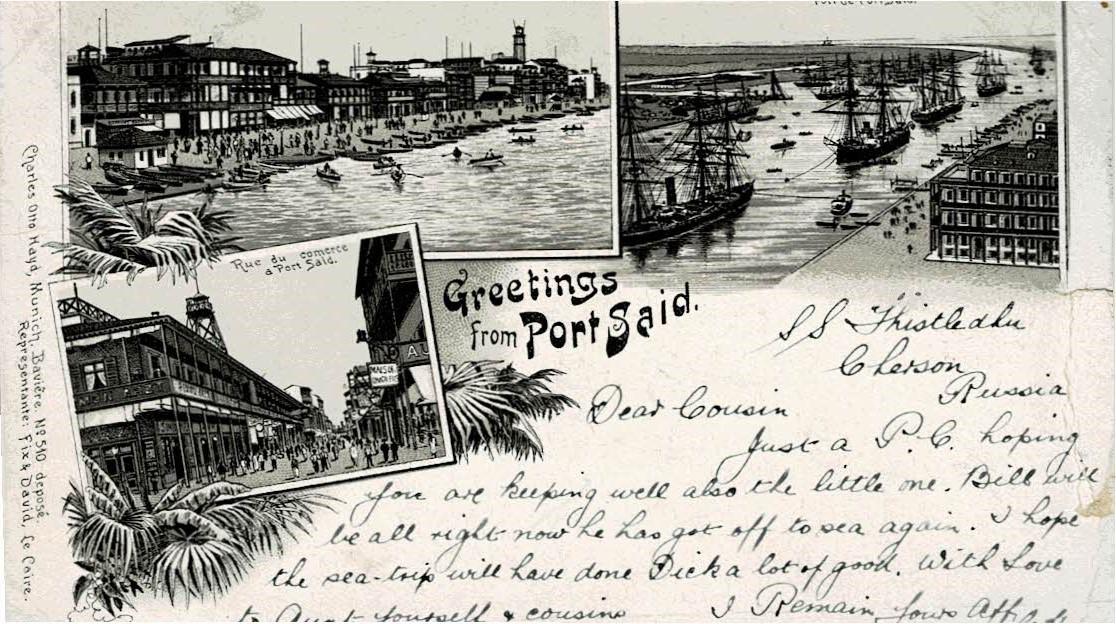 Port de Port Saïd.
Rue du comerce
a Port Saïd.
MAIS DE
Greetings
from Port Said.
Charles Otto Hayd, Munich, Bavière. Nº 510 deposé.
Representants: Fix & David, Le Caire.
S S Thistledhu
Cherson
Russia
Dear Cousin
Just a P.C. hoping
you are keeping well also the little one. Bill will
be all right now he has got off to sea again. I hope
the sea-trip will have done Dick a lot of good. With Love
to Aunt yourself & cousins I Remain Yours Aff